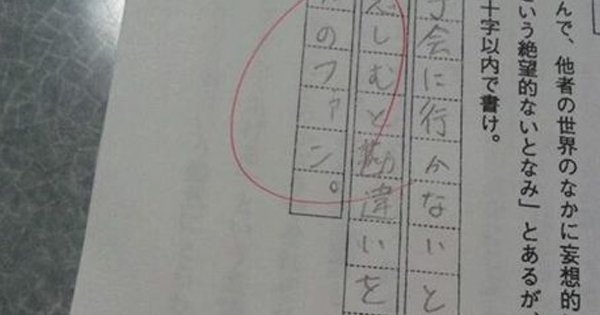 んで、他者の世界のなかに妄想的
という絶望的ないとなみ」とあるが、
十字以内で書け。
会に行かないと
しむと勘違いを
のファン。